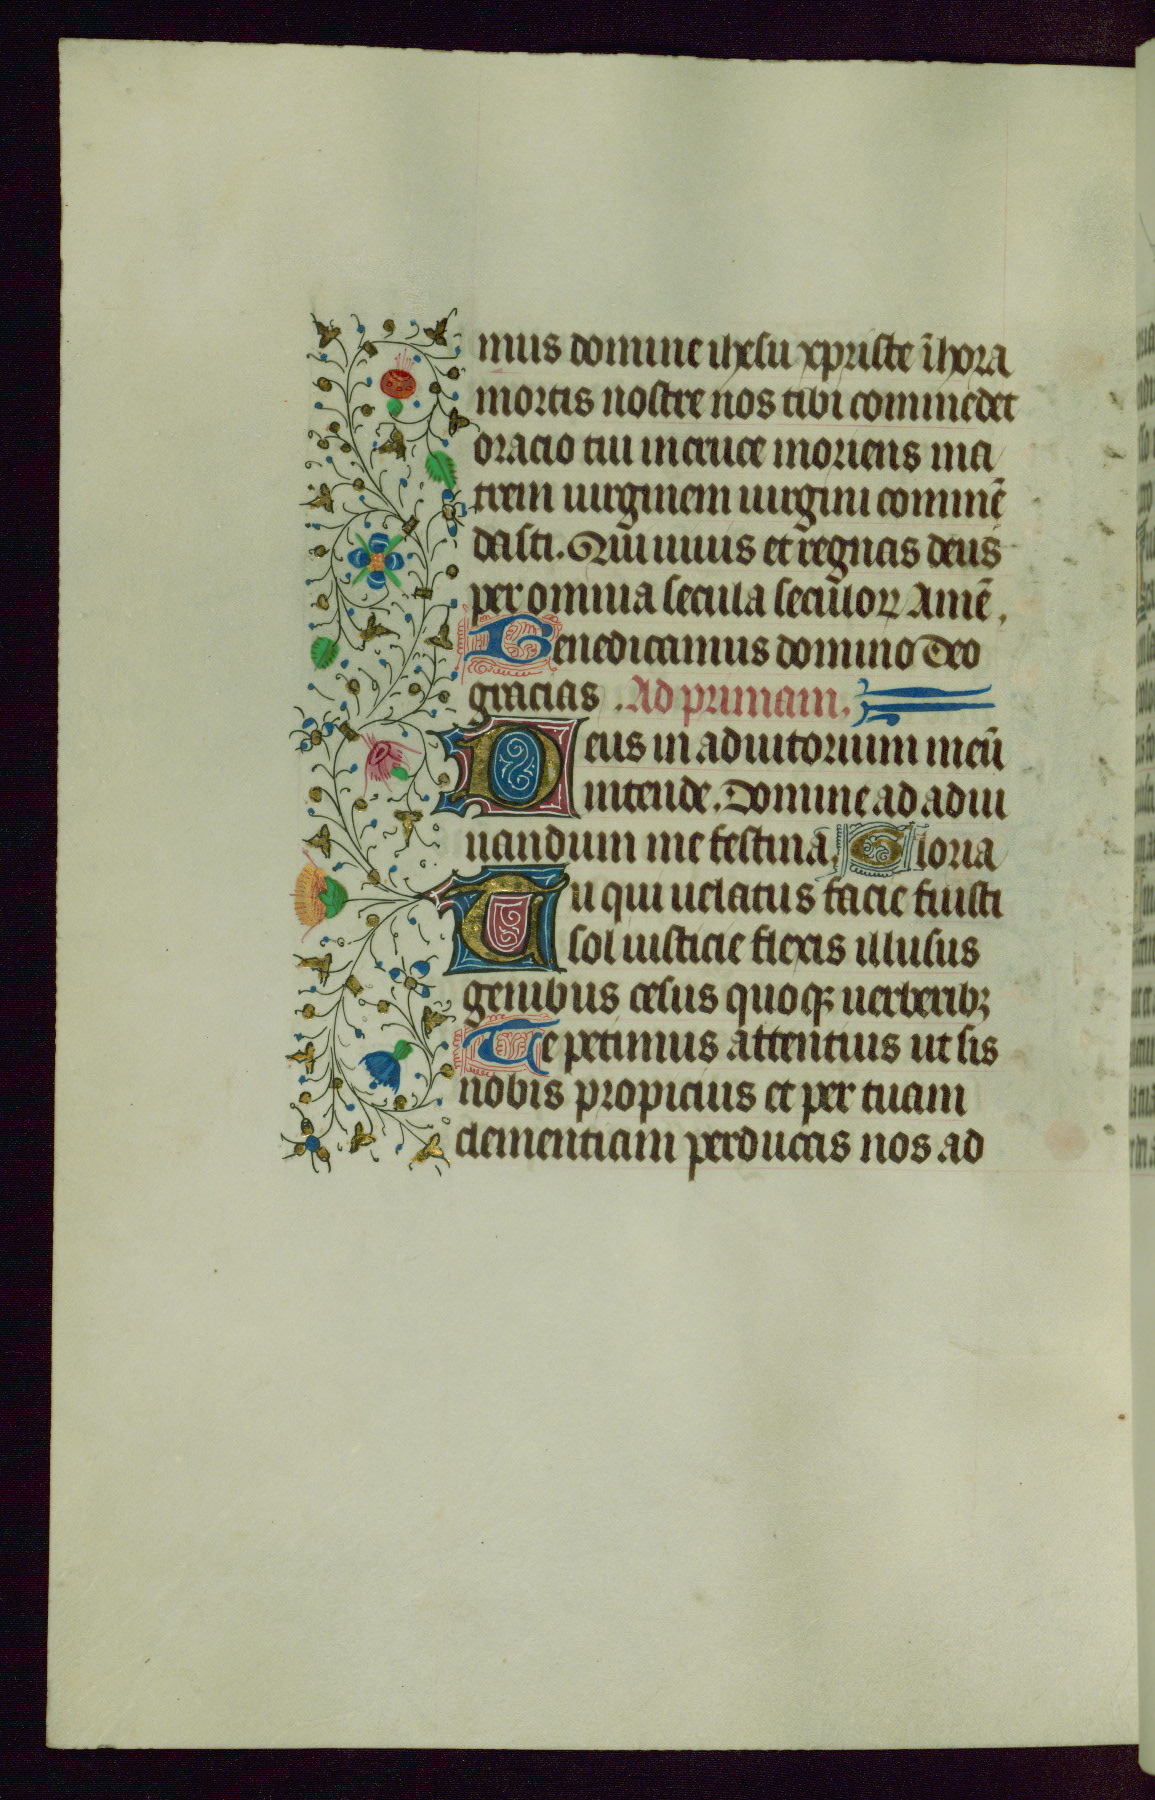 mus domine ihesu xpriste ī hora
mortis nostre nos tibi commēdet
oracio tui in cruce moriens ma
trem uirginem uirgini commē
dasti. Qui uiuis et regnas deus
per omnia secula seculoꝝ Amē.
Benedicamus domino Deo
gracias. Ad primam.
Deus in adiutorium meū
intende. Domine ad adiu
uandum me festina. Gloria
Tu qui uelatus facie fuisti
sol iusticie flexis illusus
genibus cesus quoqꝫ uerberibꝫ
Te petimus attentius ut sis
nobis propicius et per tuam
clementiam perducas nos ad